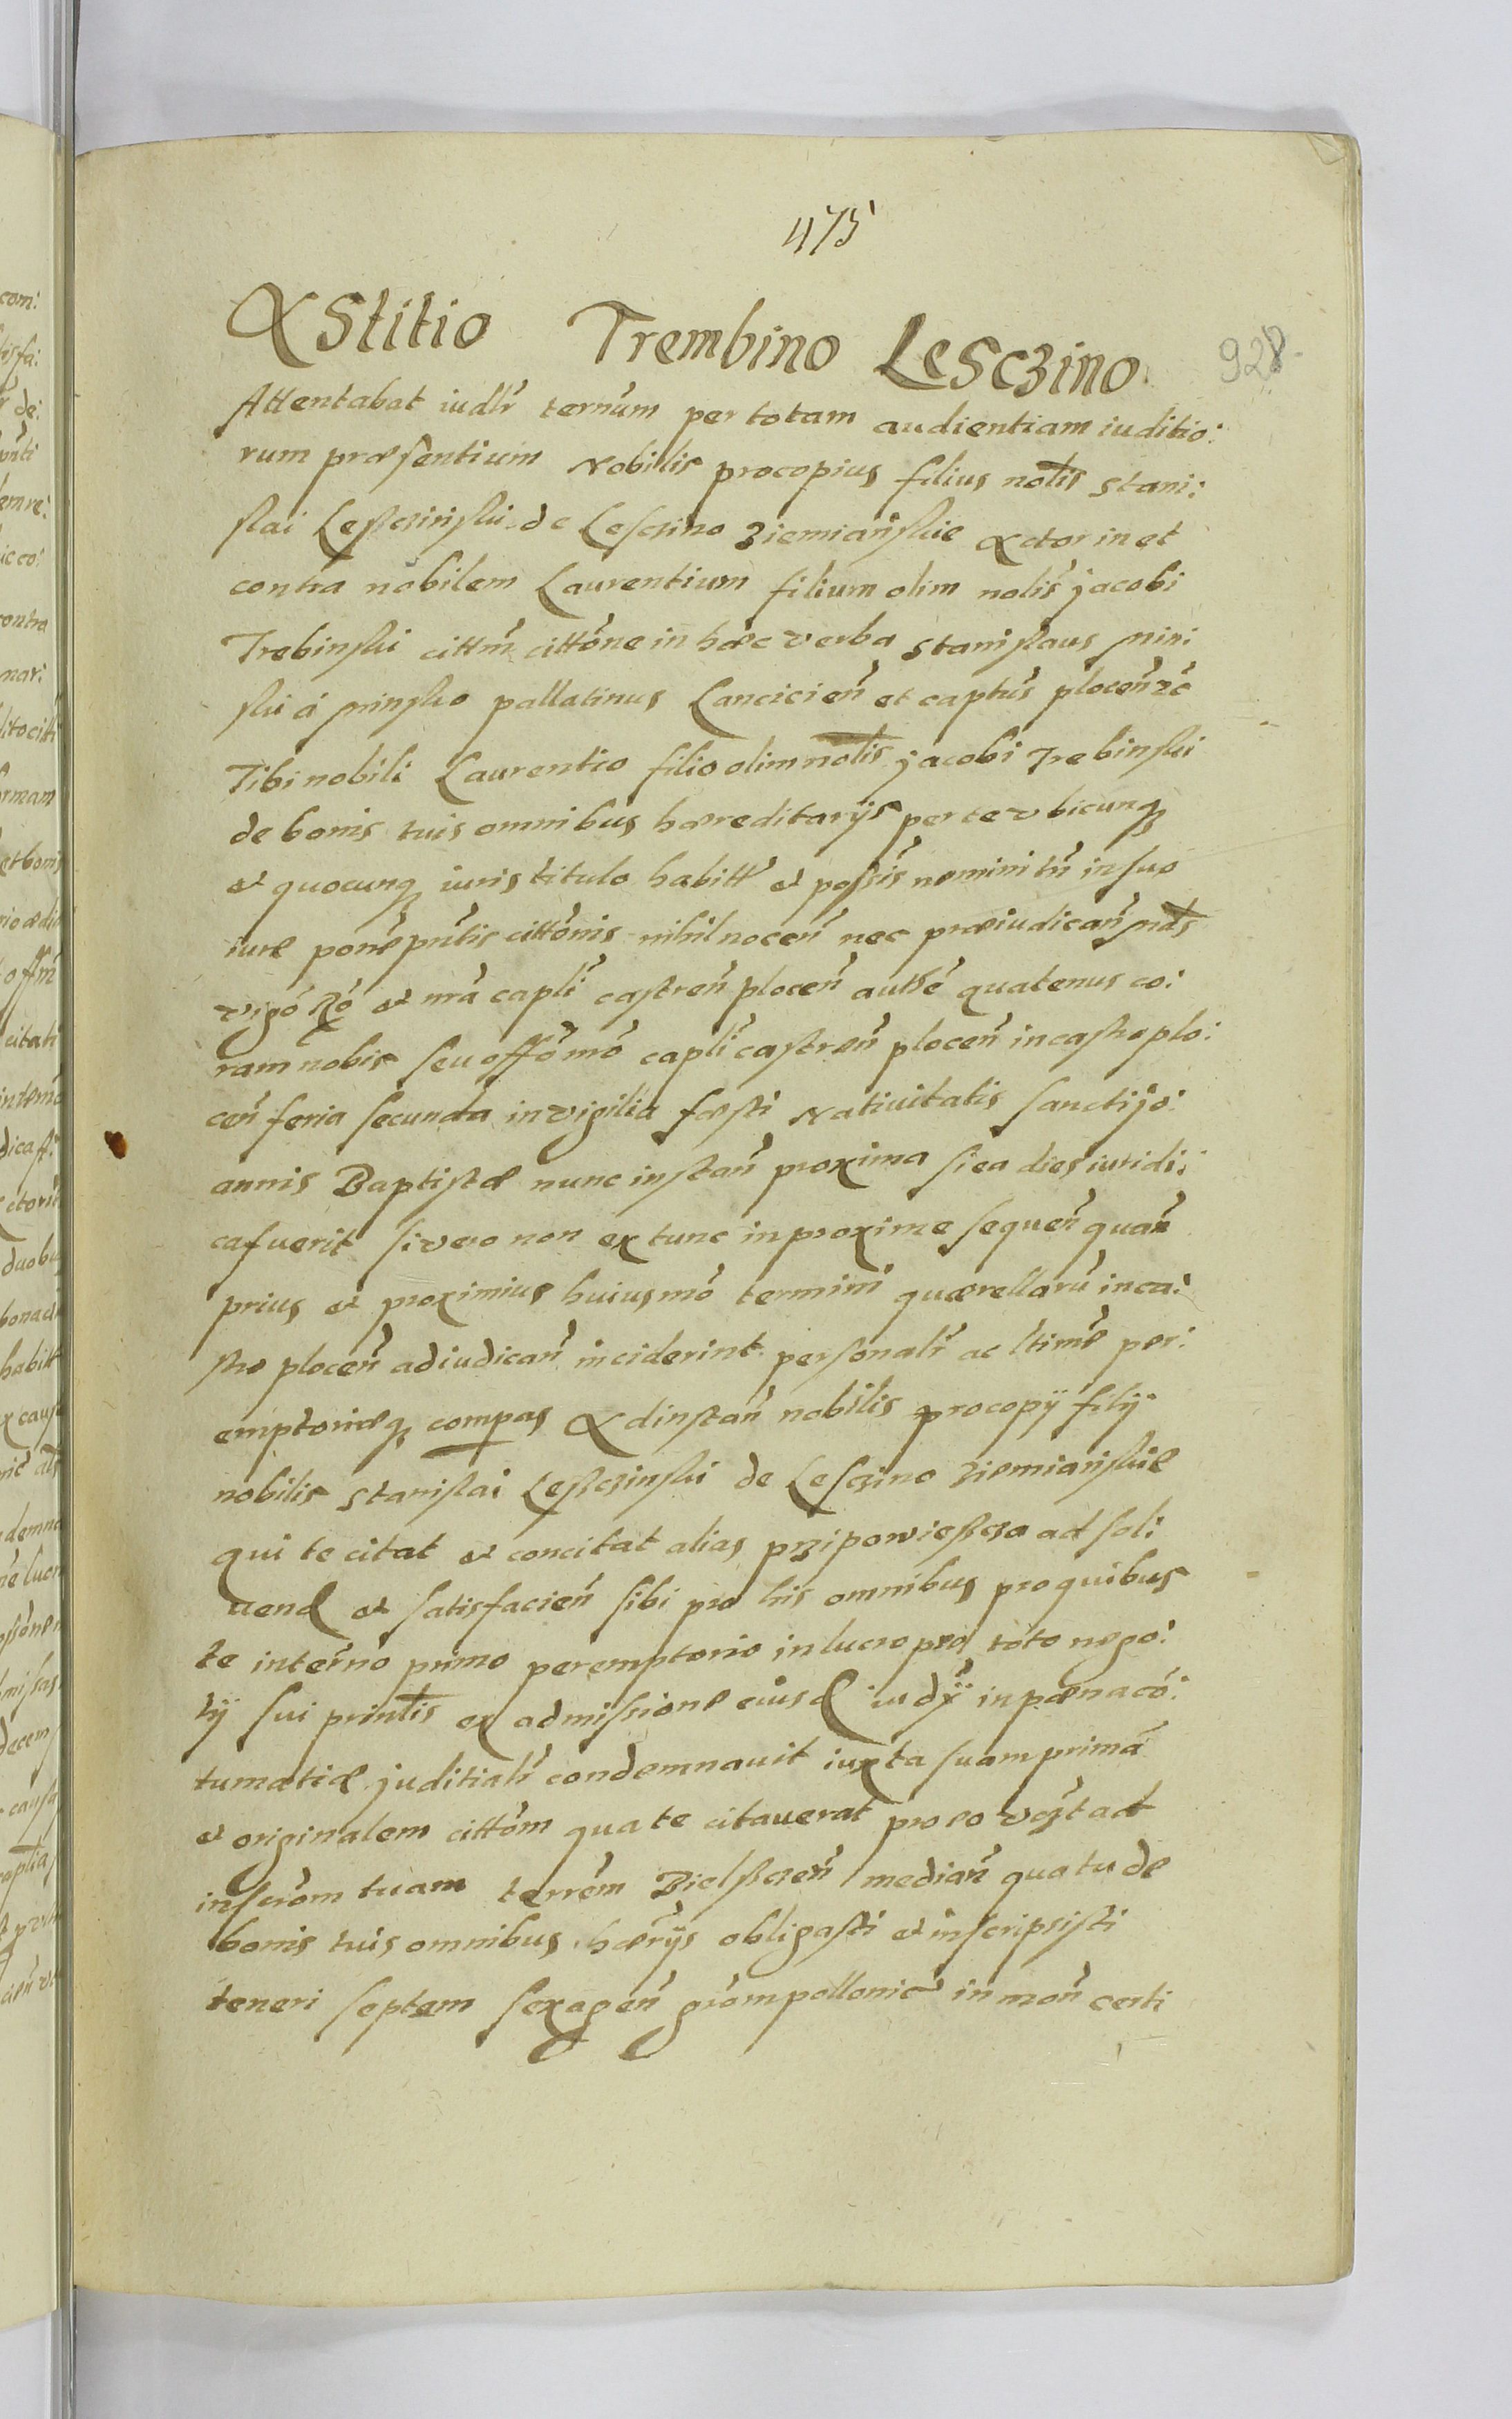 475
Astitio Trembino Lesczino
928
Attentabat iudlr ternum per totam audientiam iuditio:
rum præsentium Nobilis procopius filius nolis Stani:
slai Lessczinski de Lesczino Ziemianskie Actor in et
contra nobilem Laurentium filium olim nolis jacobi
Trebinski cittm cittone in hæc verba Stanislaus Min:
ski á Minsko pallatinus Lancicien et captus plocen zc
Tibi nobili Laurentio filio olim nolis jacobi Trebinski
de bonis tuis omnibus hæreditarijs per te vbicunq
et quocunq iuris titulo habitt et possis nemini tn in suo
iure pone pntis cittonis nihil nocen nec præiudican mds
vigo Ro et nra capli castren plocen autte quatenus co:
ram nobis seu offo mo capli castren plocen in castro plo:
cen feria secunda in vigilia festi Natiuitatis sancti jo:
annis Baptistæ nunc instan proxima si ea dies iuridi:
ca fuerit si vero non ex tunc in proxime sequen quan
prius et proximius huiusmo termini quærellaru in ca:
stro plocen adiudican inciderint personalr ac ltime per:
emptorieq compas Ad instan nobilis procopij filij
nobilis Stanislai Lessczinski de Lesczino Ziemianskie
qui te citat et concitat alias przipowiesscza ad sol:
uend et satisfacien sibi pro his omnibus pro quibus
te in terno primo peremptorio in lucro pro toto nego:
tij sui printlis ex admissione eiusd iudij in pæna co:
tumatiæ juditialr condemnauit iuxta suam prima
et originalem cittom qua te citauerat pro eo vczt ad
inscrom tuam terrem Bielsczen median qua tu de
bonis tuis omnibus hærijs obligasti et inscripsisti
teneri septem sexagen grom pollonic in mon certi